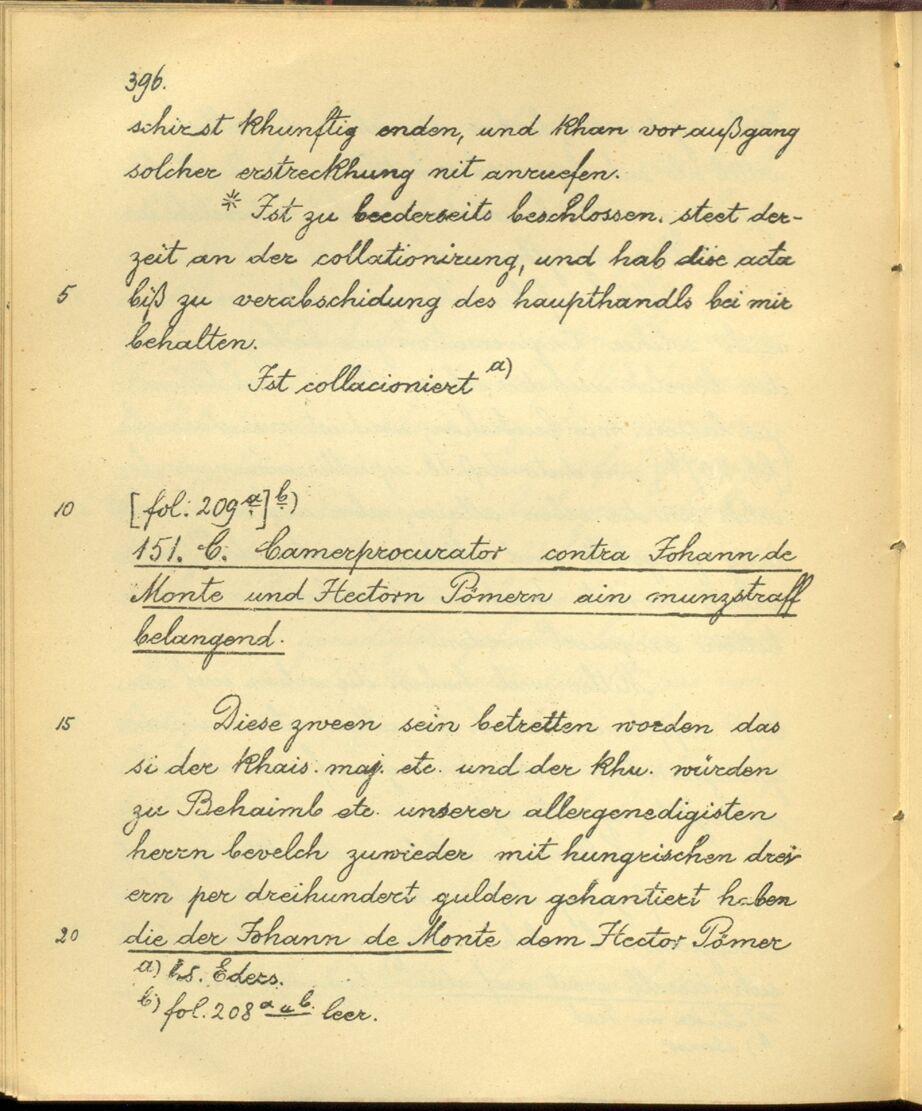 396.
schirst khunftig enden, und khan vor außgang
solcher erstreckhung nit anruefen.
* Ist zu beederseits beschlossen. steet der-
zeit an der collationirung, und hab dise acta
5 biß zu verabschidung des haupthandls bei mir
behalten.
Ist collacioniert a)
10 [fol. 209 a] b)
151. C. Camerprocurator contra Johann de
Monte und Hectorn Pömern ain munzstraff
belangend.
15 Diese zween sein betretten worden das
si der khais. maj. etc. und der khu. würden
zu Behaimb etc. unserer allergenedigisten
herrn bevelch zuwieder mit hungrischen drei
ern per dreihundert gulden gehantiert haben
20 die der Johann de Monte dem Hector Pömer
a) hs. Eders.
b) fol. 208 a u b. leer.